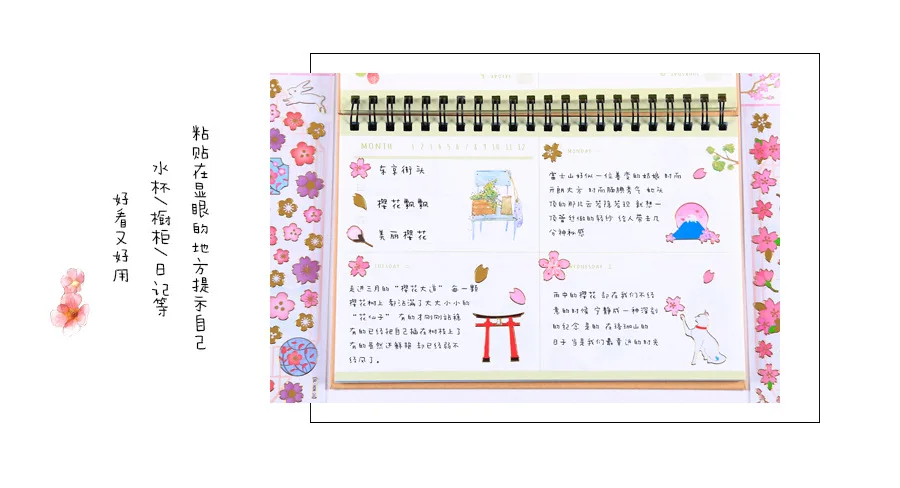 粘贴在显眼的地方提示自己
水杯/橱柜/日记等
好看又好用
MONTH 1 2 3 4 5 6 7 8 9 10 11 12
东京街头
樱花飘飘
美丽樱花
MONDAY
富士山好似一位善变的姑娘 时而
开朗大方 时而腼腆害羞 她头
顶的那片云若隐若现 就想一
顶蕾丝做的
给人带去几
分神秘感
TUESDAY
走进三月的“樱花大道” 每一颗
樱花树上 都沾满了大大小小的
“花仙子” 有的才刚刚站稳
有的已经把自己插在树枝上了
有的虽然还鲜艳 却已经弱不
经风了。
WEDNESDAY
雨中的樱花 却在我们不经
意的时候 宁静成一种深刻
的纪念 是的 在缘
的
日子 当是我们最幸运的时光